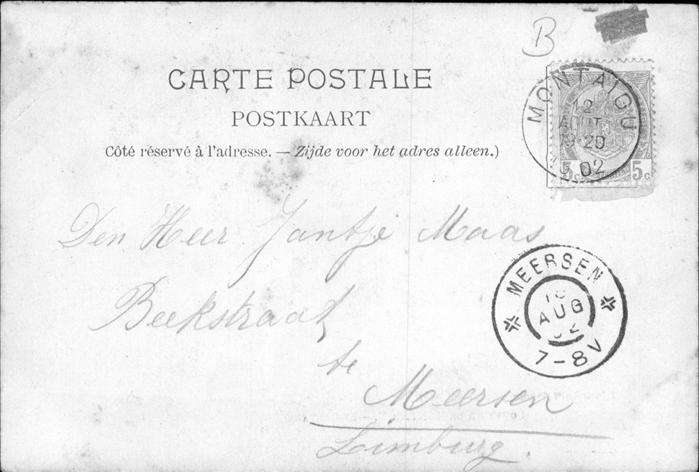 B
CARTE POSTALE
POSTKAART
Côté réservé à l'adresse. — Zijde voor het adres alleen.)
MONTAIGU
12
AOUT
20
02
5 c 5 c
Den Heer Jantje Maas
Beekstraat
te
Meersen
Limburg.
MEERSEN
AUG
02
7-8V